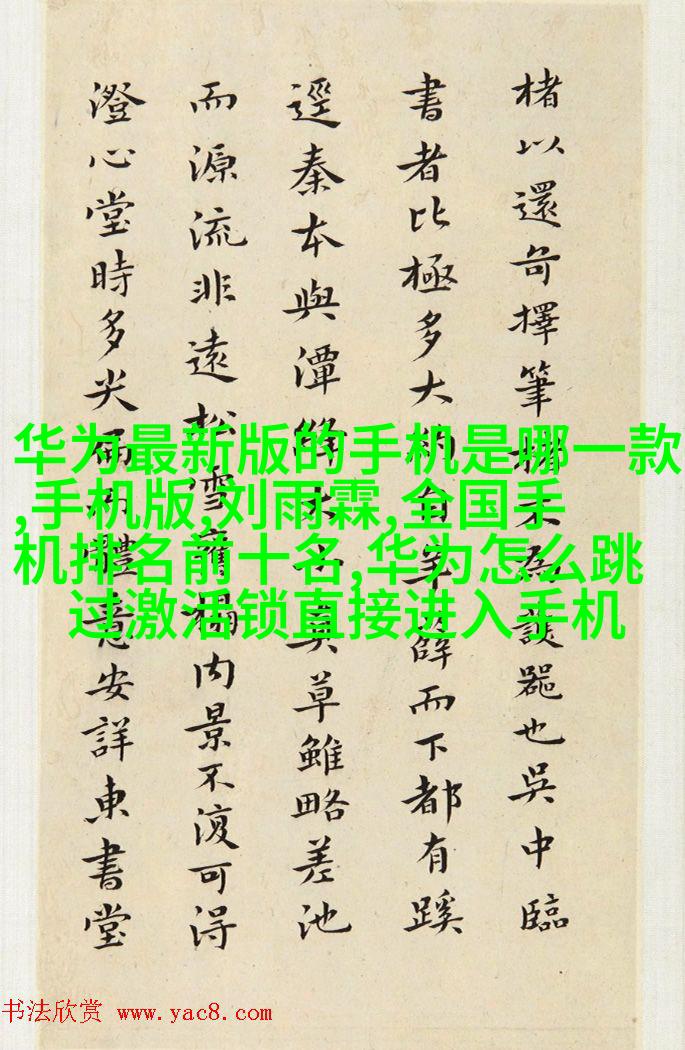 楮以還奇擇筆談器也吳中臨
書者比極多大而下都有蹊
逕秦本與潭草雖略差池
而源流非遠松雪內景不復可得
澄心堂時多尖體意安詳東書堂
华为最新版的手机是哪一款
,手机版,刘雨霖,全国手
机排名前十名,华为怎么跳
过激活锁直接进入手机
书法欣赏 www.yac8.com